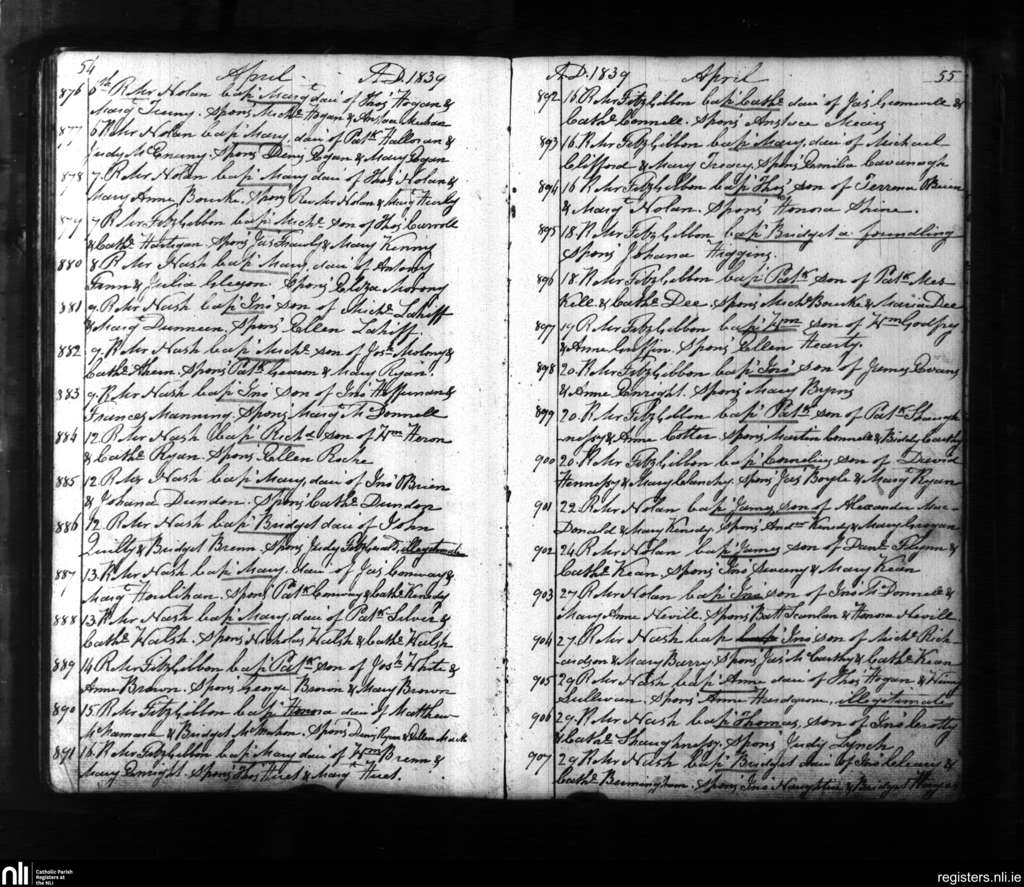 54 April A.D. 1839
876 6th R Mr Nolan bap' Margt dau' of Thos Hogan &
Margt Tuony. Spons Michl Hogan & Anstas Meehan
877 6 R Mr Nolan bap' Mary dau' of Patk Halloran &
Judy Mc Enurny Spons' Deny Ryan & Mary Ryan
878 7 R Mr Nolan bap' Mary dau' of Thos Nolan &
Mary Anne Bourke. Spons Rev Mr Nolan & Margt Hearty
879 7 R Mr FitzGibbon bap' Michl son of Thos Carroll
& Cathe Hartigan. Spons Jas Frawly & Mary Kenny
880 8 R Mr Nash bap' Mary dau' of Antony
Finn & Julia Gleeson. Spons' Eliza Morony
881 9 R Mr Nash bap' Jno son of Michl Lahiff
& Margt Dunneen. Spons' Ellen Lahiff
882 9. R Mr Nash bap' Michl son of Jos. Molony &
Cathe Ahern. Spons' Patk & Mary Ryan
883 9. R Mr Nash bap' Jno son of Jno Heffernan &
Frances Manning. Spons' Margt Mc Donnell
884 12. R Mr Nash bap' Richd son of Wm Heron
& Cathe Ryan. Spons Ellen Roche
885 12 R Mr Nash bap' Mary, dau' of Jno OBrien
& Johana Dundon. Spons Cathe Dundon
886 12 R Mr Nash bap' Bridget dau' of John
Quilty & Bridget Brenn. Spons Judy Fitzgerald illegitimate
887 13. R Mr Nash bap' Mary. dau' of Jas Conway &
Margt Houlihan. Spons' Patk Conway & Cathe Kennedy
888 13 R Mr Nash bap' Mary, dau' of Patk Silver &
Cathe Walsh. Spons Nicholas Walsh & Cathe Walsh
889 14 R Mr FitzGibbon bap' Patk son of Josh White &
Anne Brown. Spons George Brown & Mary Brown
890 15 R Mr FitzGibbon bap' Honora dau' of Matthew
McNamara & Bridget McMahon. Spons' Deny Ryan & Ellen
891 16 R Mr FitzGibbon bap' Mary dau' of Wm Brenn &
Mary Enright. Spons Thos Hiret & Margt Hiret.
A.D. 1839 April 55
892 15. R Mr FitzGibbon bap' Cathe dau' of Jas Cromwell &
Cathe Connell. Spons' Anstace Meany
893 16 R Mr FitzGibbon bap' Mary. dau' of Michael
Clifford & Mary Treacy. Spons' Cavanagh
894 16 R Mr FitzGibbon bap' Thos son of Terrence OBrien
& Margt Nolan. Spons' Honora Shine.
895 18. R Mr FitzGibbon bap' Bridget a foundling
Spons' Johana Higgins.
896 18. R Mr FitzGibbon bap' Patk son of Patk Mes-
kill & Cathe Dee. Spons' Michl Bourke & Maria Dee
897 19 R Mr FitzGibbon bap' Wm son of Wm Godfrey
& Anne Griffin. Spons' Ellen Hearty.
898 20. R Mr FitzGibbon bap' Jno' son of James Evans
& Anne Enright. Spons' Mary Byrns
899 20. R Mr FitzGibbon bap' Patk son of Patk Shaugh-
nessy & Anne Cotter. Spons Martin Connell & Biddy
900 20. R Mr FitzGibbon bap' Cornelius son of David
Hennessy & Mary Clanchy. Spons' Jas Boyle & Mary Ryan
901 22. R Mr Nolan bap' James son of Alexander Mac-
Donald & Mary Kenedy. Spons Andw Kenedy & Mary Grogan
902 24 R Mr Nolan bap' James son of Danl Flynn &
Cathe Kean. Spons' Jno' Sweeny & Mary Kean
903 27. R Mr Nolan bap' Jno son of Jno Mc Donnell &
Mary Anne Nevill. Spons' Batt Scanlan & Honora Nevill
904 27. R Mr Nash bap' Jno son of Michl Rich-
ardson & Mary Barry. Spons Jas Mc Carthy & Cathe Kean
905 29 R Mr Nash bap' Anne dau' of Thos Hogan &
Sullivan. Spons' Anne Hardgrove, illegitimate
906 29. R Mr Nash bap' Thomas, son of Jno' Crotty
& Cathe Shaughnessy. Spons' Judy Lynch
907 29 R Mr Nash bap' Bridget dau' of Jno Cleary &
Cathe Bermingham. Spons Jno' Naughtin & Bridget Hayes
nli Catholic Parish
Registers at
the NLI
registers.nli.ie